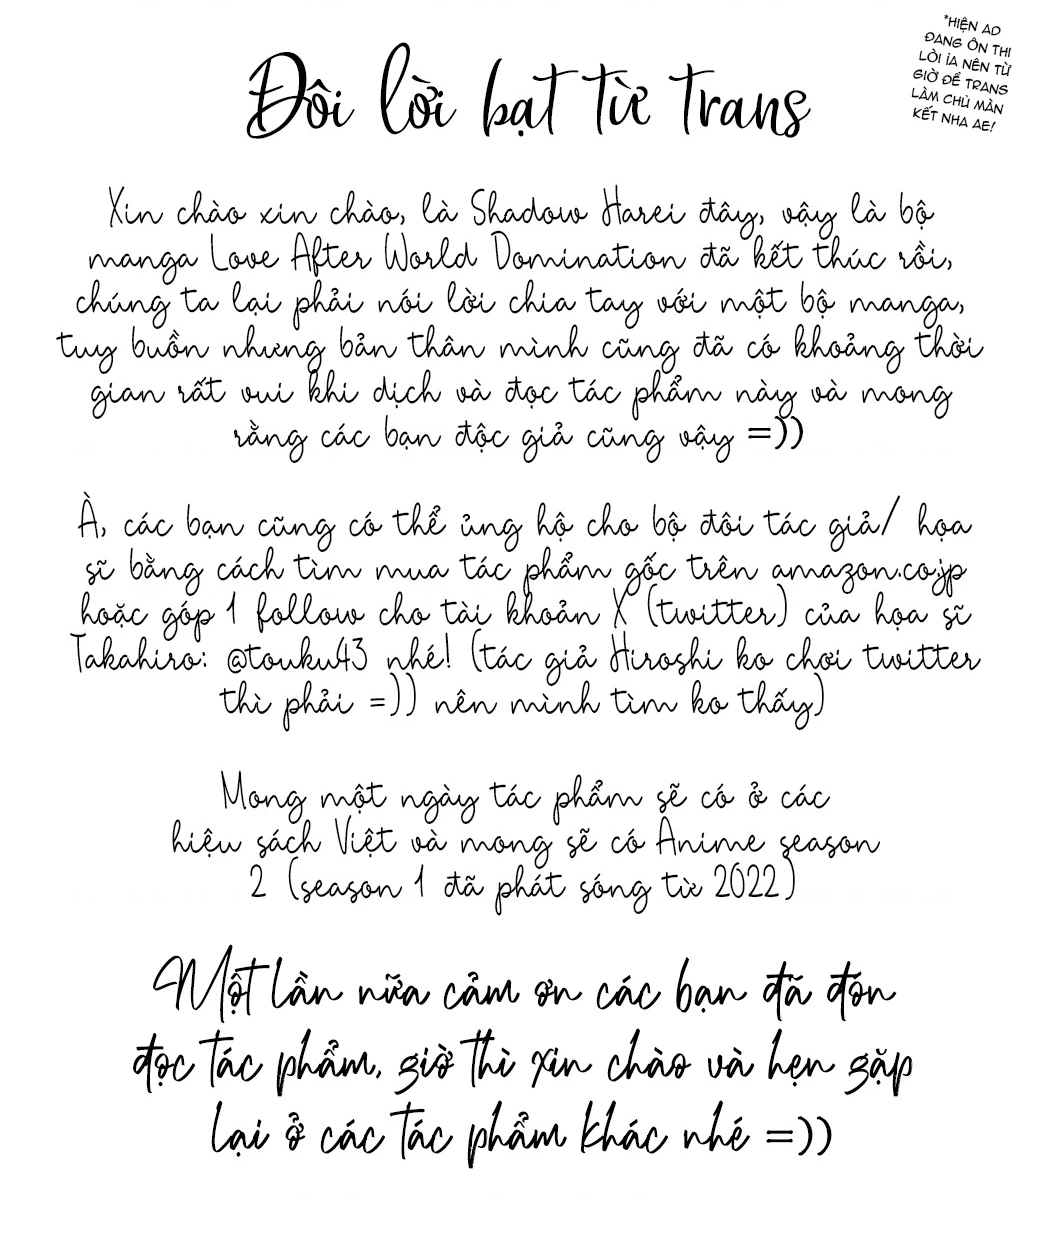 Đôi lời bạt từ trans
*HIỆN AD
ĐANG ÔN THI
LÒI ỈA NÊN TỪ
GIỜ ĐỂ TRANS
LÀM CHỦ MÀN
KẾT NHA AE!
Xin chào xin chào, là Shadow Harei đây, vậy là bộ
manga Love After World Domination đã kết thúc rồi,
chúng ta lại phải nói lời chia tay với một bộ manga,
tuy buồn nhưng bản thân mình cũng đã có khoảng thời
gian rất vui khi dịch và đọc tác phẩm này và mong
rằng các bạn độc giả cũng vậy =))
À, các bạn cũng có thể ủng hộ cho bộ đôi tác giả/ họa
sĩ bằng cách tìm mua tác phẩm gốc trên amazon.co.jp
hoặc góp 1 follow cho tài khoản X (twitter) của họa sĩ
Takahiro: @touku43 nhé! (tác giả Hiroshi ko chơi twitter
thì phải =)) nên mình tìm ko thấy)
Mong một ngày tác phẩm sẽ có ở các
hiệu sách Việt và mong sẽ có Anime season
2 (season 1 đã phát sóng từ 2022)
Một lần nữa cảm ơn các bạn đã đón
đọc tác phẩm, giờ thì xin chào và hẹn gặp
lại ở các tác phẩm khác nhé =))